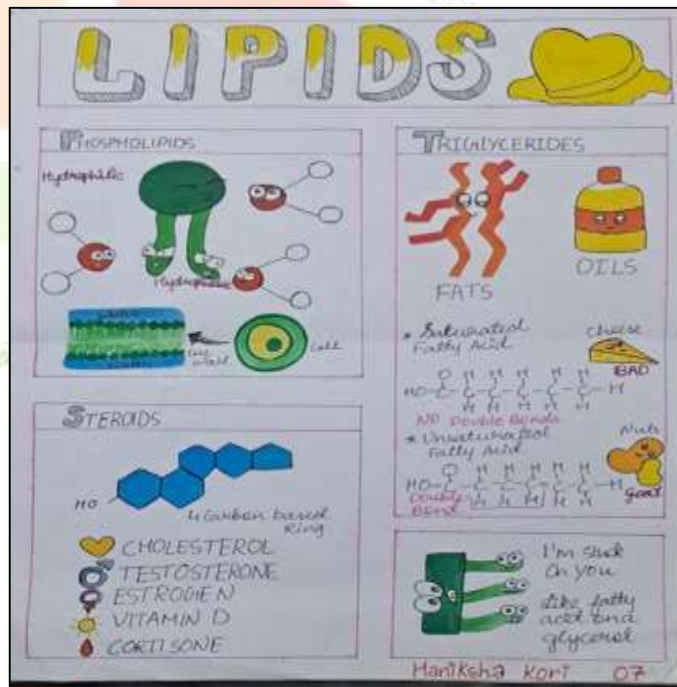 LIPIDS
PHOSPHOLIPIDS
Hydrophilic
Cell
STEROIDS
HO
4 Carbon based
Ring
CHOLESTEROL
TESTOSTERONE
ESTROGEN
VITAMIN D
CORTISONE
TRIGLYCERIDES
FATS
OILS
* Saturated
Fatty Acid
Cheese
BAD
O H H H H H
HO-C-C-C-C-C-C-H
H H H H H
NO Double Bonds
* Unsaturated
Fatty Acid
Nuts
Good
O H H H H H
HO-C-C-C-C-C-C-H
Double
Bond
I'm stuck
On you
Like fatty
acid and
glycerol
Maniksha Kori 07